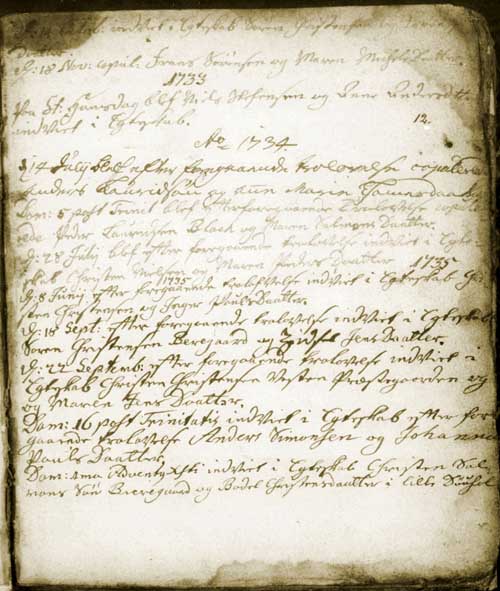 indviet i Egteskab Søren Christensen og
Daatter.
D: 18 Nov: copul: Frans Sørensen og Maren Michels Datter.
1733
Paa St. Hansdag blef Niels og Anne
indviet i Egteskab.
12.
Ao 1734
14 July blef efter foregaaende trolovelse copuleret
Anders Lauridsøn og Ann Maria
Dom: 5 post Trinit blef efterforegaaende Trolovelse
Peder Lauridsen Black og Maren Daatter.
D: 28 July blef efter foregaaende trolovelse indviet i Egte-
skab Christen Nielsen og Maren Peders Daatter 1735
1735
D: 8 Junij efter foregaaende trolovelse indviet i Egteskab Chri-
sten Christensen og Inger Pouls Daatter.
D: 18 Sept: efter foregaaende trolovelse indviet i Egteskab
Søren Christensen Beregaard og Zidsel Jens Daatter.
D: 22 Septemb: efter foregaaende trolovelse indviet i
Egteskab Christen Christensen Vesten Præstegaarden og
og Maren Jens Daatter.
Dom: 16 post Trinitatis indviet i Egteskab efter for-
gaaende trolovelse Anders Simonsen og Johanne
Pouls Daatter.
Dom: 1ma Adventus Xsti indviet i Egteskab Christen Sal-
mons Søn Beeregaard og Bodel Christensdaatter i lille